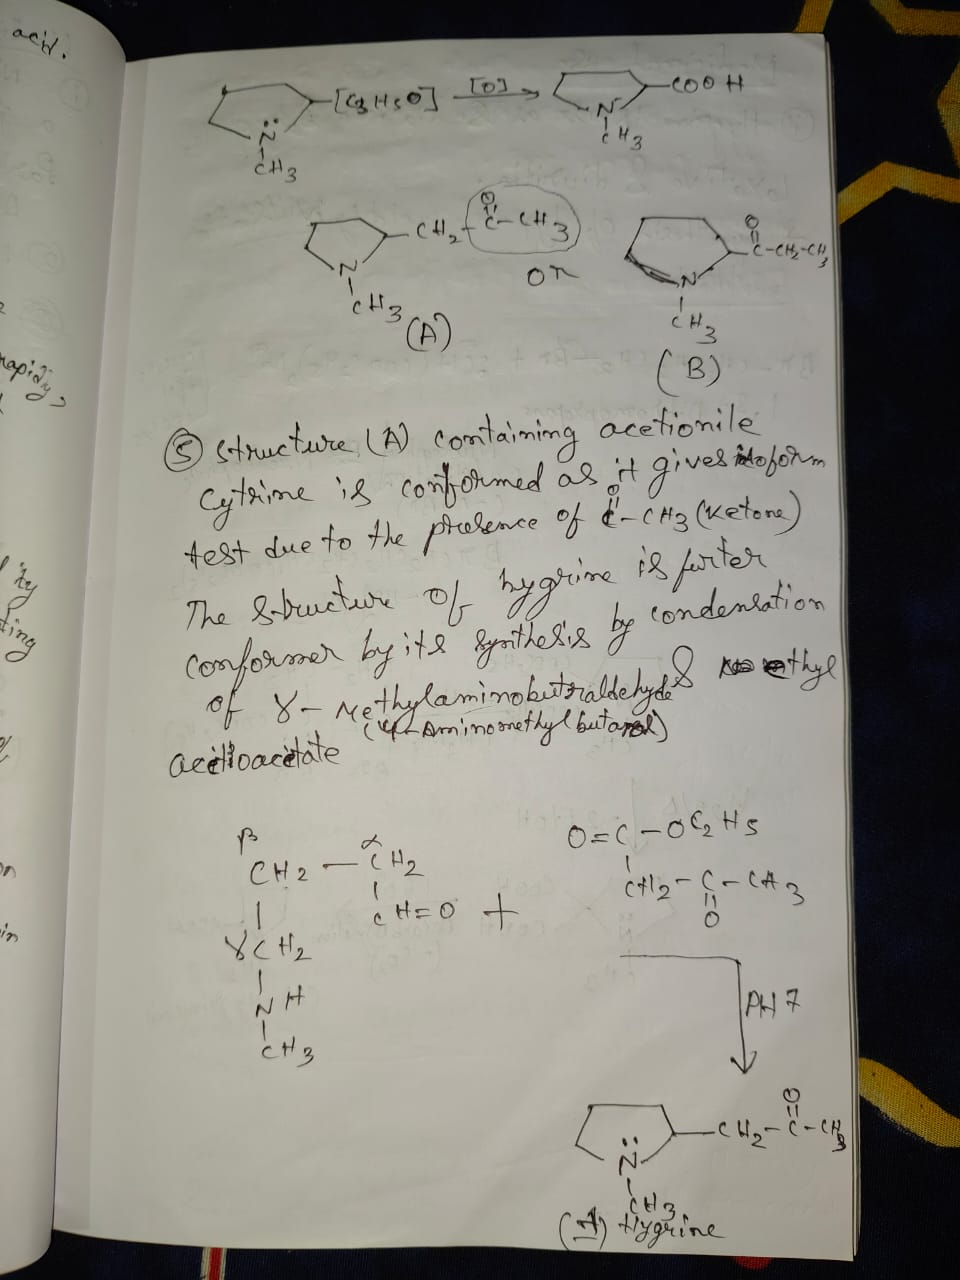 acid.
-[C3H5O] [O] -COOH
N
CH3
N
CH3
-CH2-C-CH3
O
N
CH3
(A)
or
O
C-CH2-CH3
N
CH3
(B)
rapidly,
ity
ting
on
in
⑤ Structure (A) containing acetionile
Cytrime is conformed as it gives iodoform
O
test due to the presence of C-CH3 (Ketone)
The Structure of hygrine is furter
conformer by its Synthesis by condensation
of γ- Methylaminobutraldehyde & ethyl
(4-Aminomethyl butanol)
acetioacetate
β α
CH2 - CH2
CH=O
γCH2
NH
CH3
+
O=C-OC2H5
CH2-C-CH3
O
PH 7
O
-CH2-C-CH3
N
CH3
Hygrine